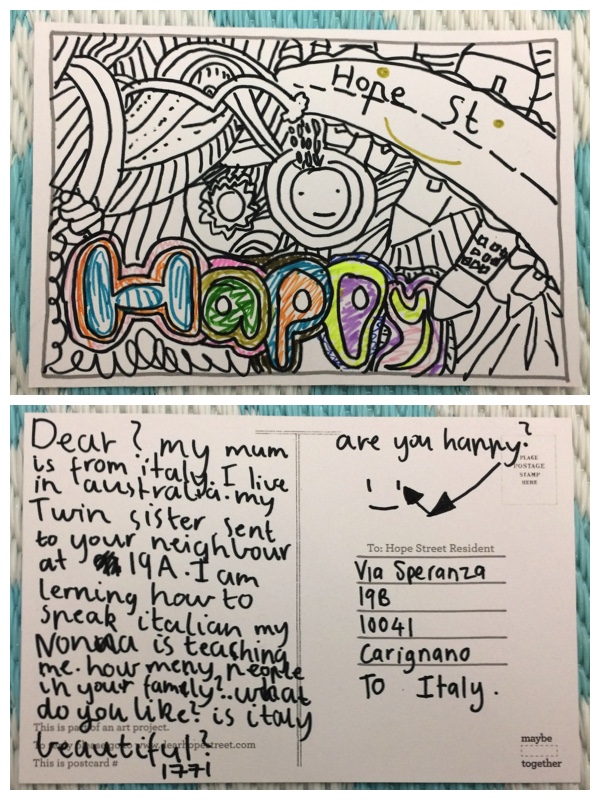 Hope St
Happy
Dear? my mum
is from italy. I live
in australia. my
Twin sister sent
to your neighbour
at 19A. I am
lerning how to
speak italian my
Nonna is teaching
me. how meny people
in your famely?..what
do you like? is italy
beautiful?
This is part of an art project.
www.dearhopestreet.com
This is postcard #
1771
are you happy?
PLACE
POSTAGE
STAMP
HERE
To: Hope Street Resident
Via Speranza
19B
10041
Carignano
TO Italy.
maybe
together